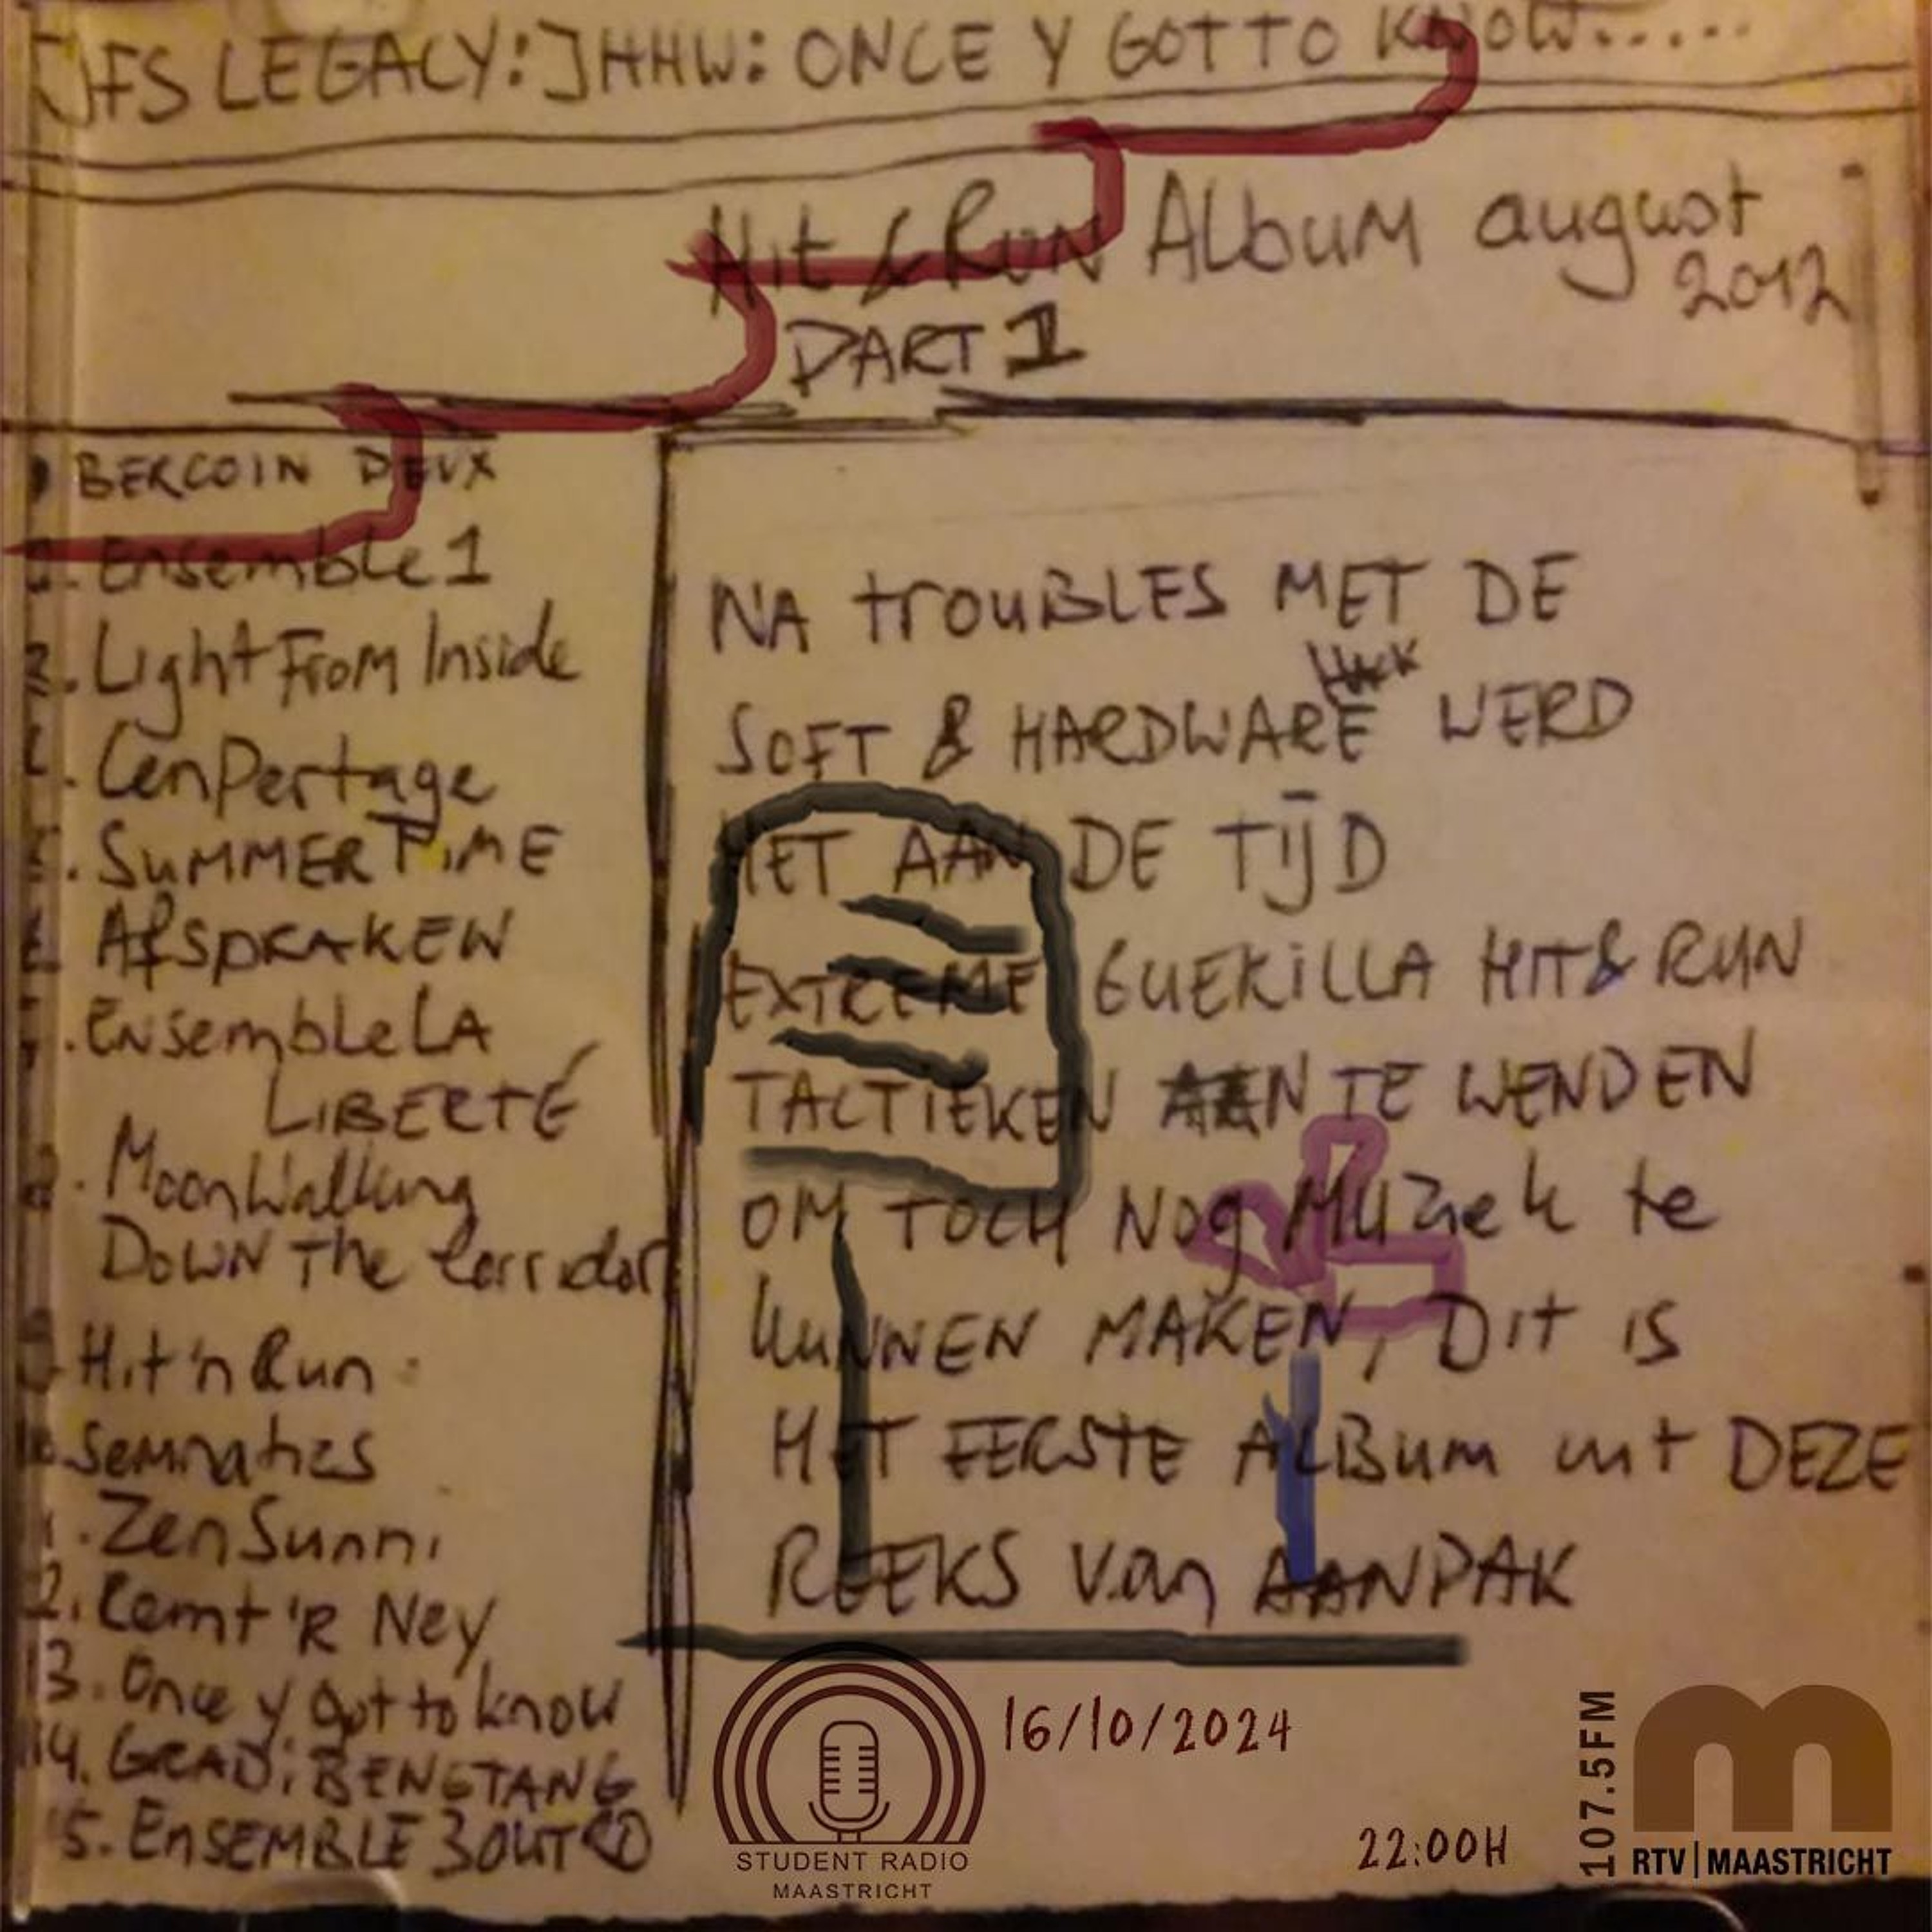 JFS LEGACY: JHHW: ONCE Y GOT TO KNOW.....
Hit & Run Album august
2012
PART 1
BERCOIN DEUX
Ensemble 1
3. Light From Inside
CenPertage
SUMMERTIME
AfSPRAKEN
Ensemble LA
LIBERTÉ
MoonWalking
DOWN The Corridor
Hit'n Run
Semnatics
ZenSunni
2. Cemt'R Ney
13. Once y got to know
14. GRADiBENGTANG
15. ENSEMBLE 3 OUTRO
NA trouBLES MET DE
SOFT & HARDWARE WERD
HET AAN DE TIJD
EXTREME GUERILLA HIT & RUN
TACTIEKEN AAN TE WENDEN
OM TOCH NOG MUZiek te
KUNNEN MAKEN, Dit is
HET EERSTE ALBum uit DEZE
REEKS van AANPAK
STUDENT RADIO
MAASTRICHT
16/10/2024
22:00H
107.5FM
RTV | MAASTRICHT